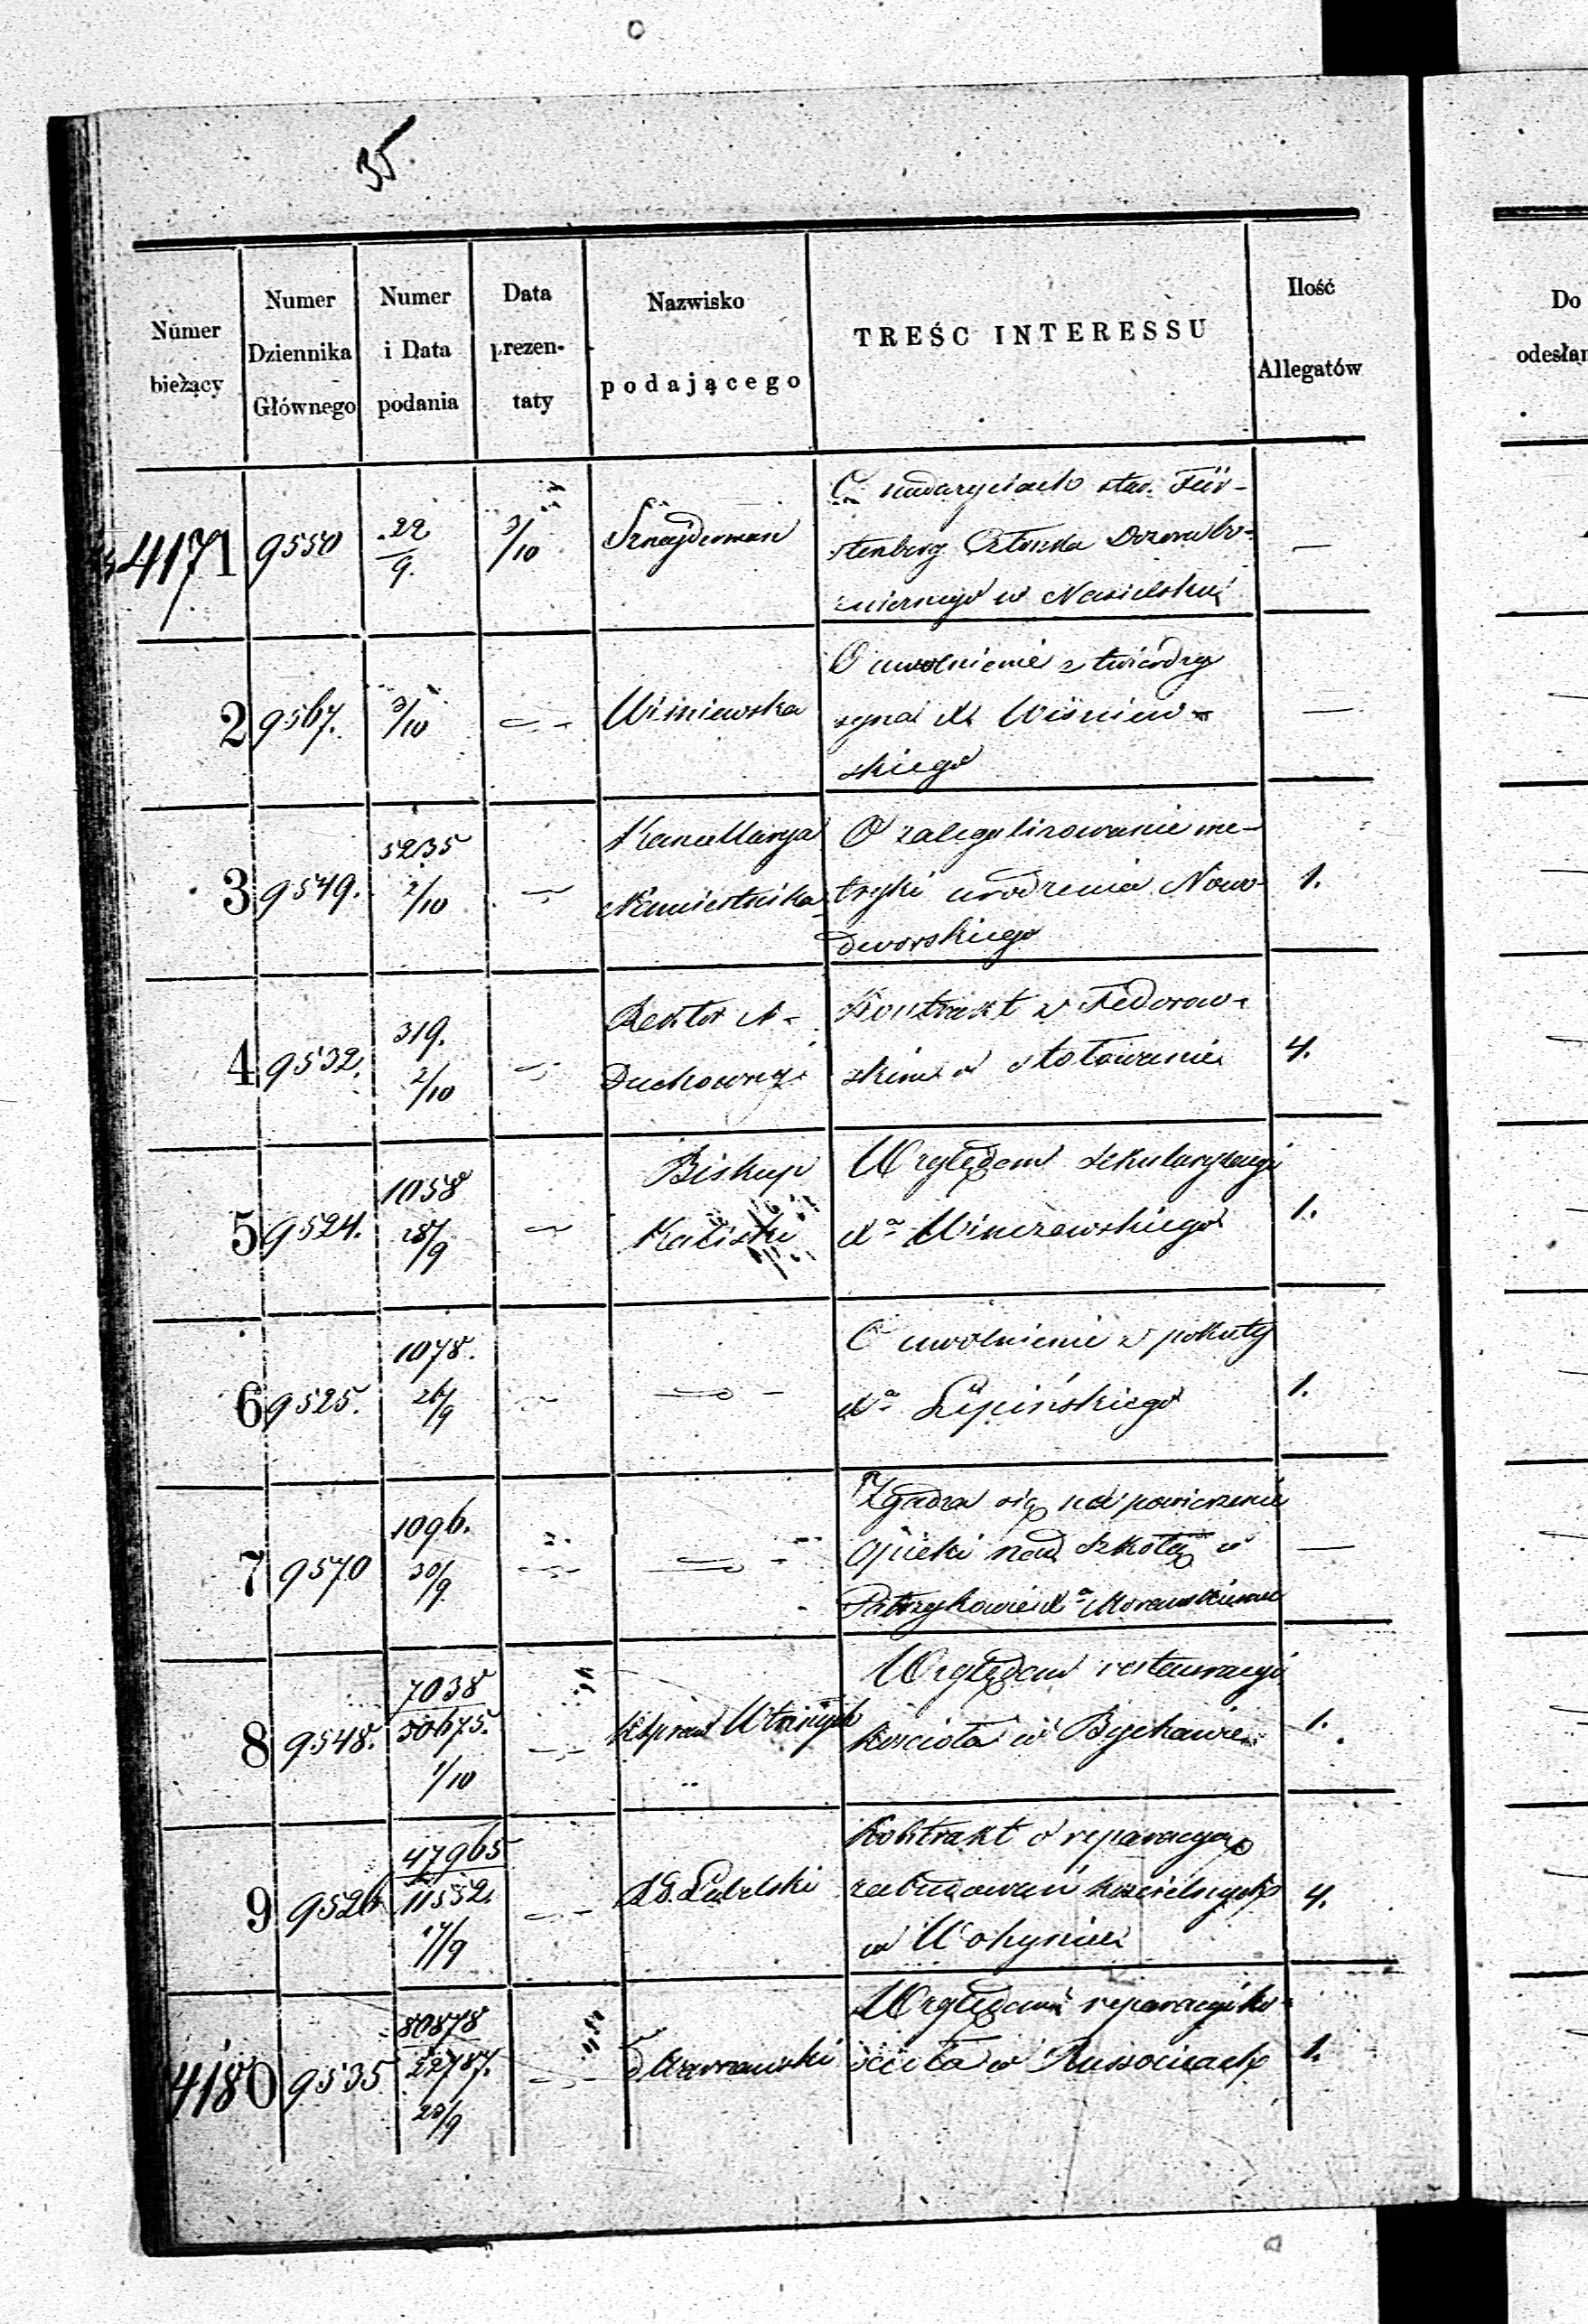 35.
Numer
bieżący
Numer
Dziennika
Głównego
Numer
i Data
podania
Data
prezen-
taty
Nazwisko
podającego
TREŚC INTERESSU
Ilość
Allegatów
Do
4171 9550 22/9. 3/10 Sznajderman
O nadużyciach star. Für-
stenberg Członka Dozoru bo-
żniczego w Nasielsku
—
2 9567. 3/10 Wiśniewska
O uwolnienie z twierdzy
syna X Wiśniew-
skiego
—
3 9549. 5235 2/10 Kancellarya
Namiestnika
O zalegalizowanie me-
tryki urodzenia Nowo-
dworskiego
1.
4 9532. 319. 2/10 Rektor A-
Duchownej
Kontrakt z Fedorow-
skim o stołowanie
4.
5 9524. 1058 28/9 Biskup
Kaliski
Względem sekularyzacyi
Xa Winczewskiego
1.
6 9525. 1078. 26/9
O uwolnienie z pokuty
Xa Lipińskiego
1.
7 9570 1096. 30/9.
Zgadza się na powierzenie
opieki nad szkołą w
Xa Morawskiemu
—
8 9548. 7038
30675. 1/10
Względem restauracyi
kościoła w Bychawie
1.
9 9526 47965
11552. 17/9 Lubelski
Kontrakt o reparacyą
zabudowań kościelnych
w Wohyniu
4.
4180 9535 80878
22787. 23/9 Warszawski
Względem reparacyi ko-
ścioła w
1.